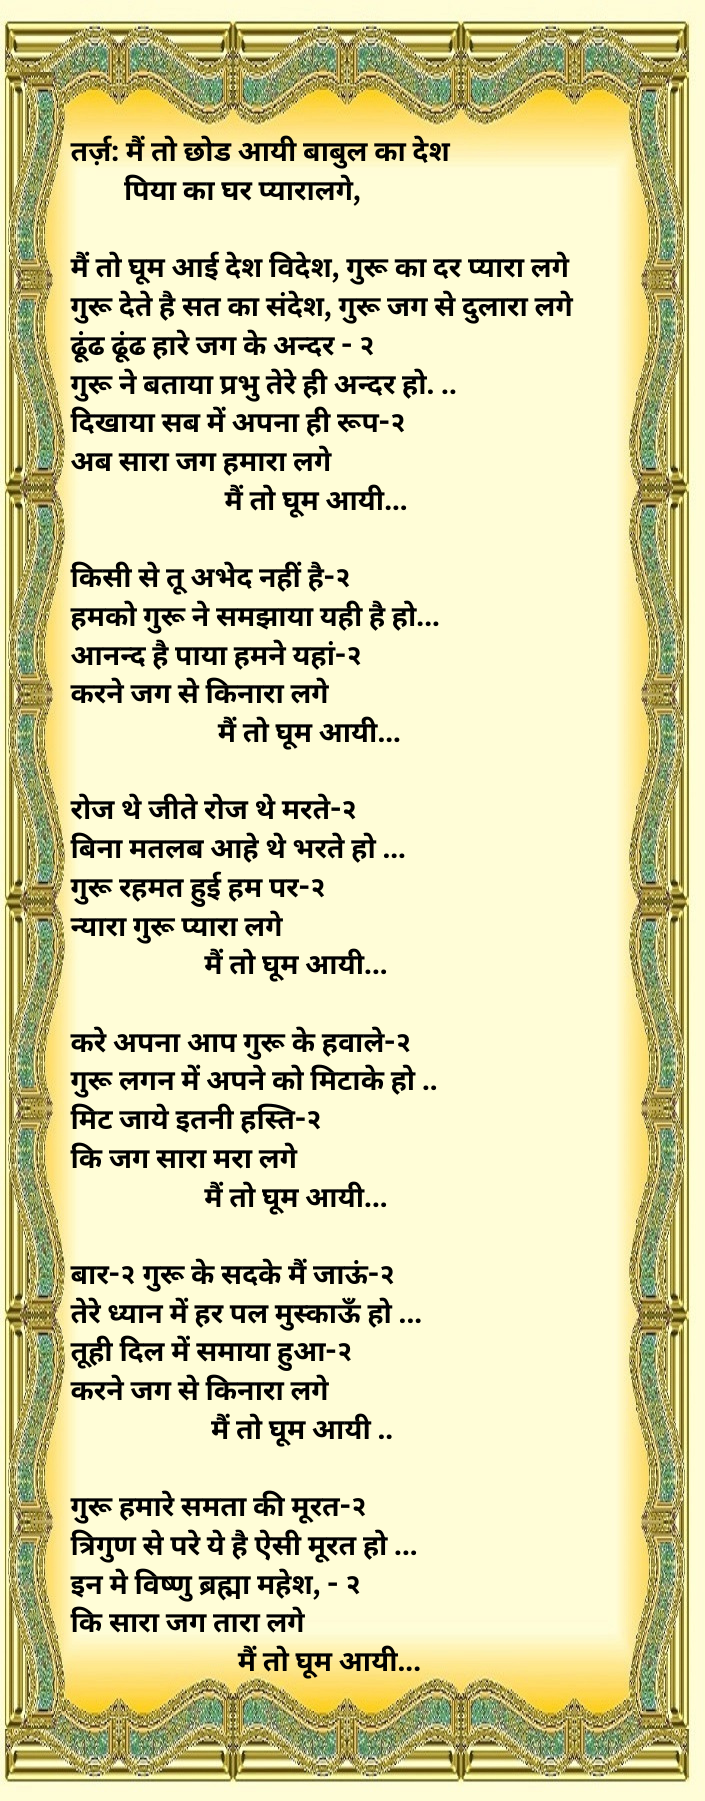 तर्ज़: मैं तो छोड आयी बाबुल का देश
पिया का घर प्यारालगे,
मैं तो घूम आई देश विदेश, गुरू का दर प्यारा लगे
गुरू देते है सत का संदेश, गुरू जग से दुलारा लगे
ढूंढ ढूंढ हारे जग के अन्दर - २
गुरू ने बताया प्रभु तेरे ही अन्दर हो. ..
दिखाया सब में अपना ही रूप-२
अब सारा जग हमारा लगे
मैं तो घूम आयी...
किसी से तू अभेद नहीं है-२
हमको गुरू ने समझाया यही है हो...
आनन्द है पाया हमने यहां-२
करने जग से किनारा लगे
मैं तो घूम आयी...
रोज थे जीते रोज थे मरते-२
बिना मतलब आहे थे भरते हो ...
गुरू रहमत हुई हम पर-२
न्यारा गुरू प्यारा लगे
मैं तो घूम आयी...
करे अपना आप गुरू के हवाले-२
गुरू लगन में अपने को मिटाके हो ..
मिट जाये इतनी हस्ति-२
कि जग सारा मरा लगे
मैं तो घूम आयी...
बार-२ गुरू के सदके मैं जाऊं-२
तेरे ध्यान में हर पल मुस्काऊँ हो ...
तूही दिल में समाया हुआ-२
करने जग से किनारा लगे
मैं तो घूम आयी ..
गुरू हमारे समता की मूरत-२
त्रिगुण से परे ये है ऐसी मूरत हो ...
इन मे विष्णु ब्रह्मा महेश, - २
कि सारा जग तारा लगे
मैं तो घूम आयी...